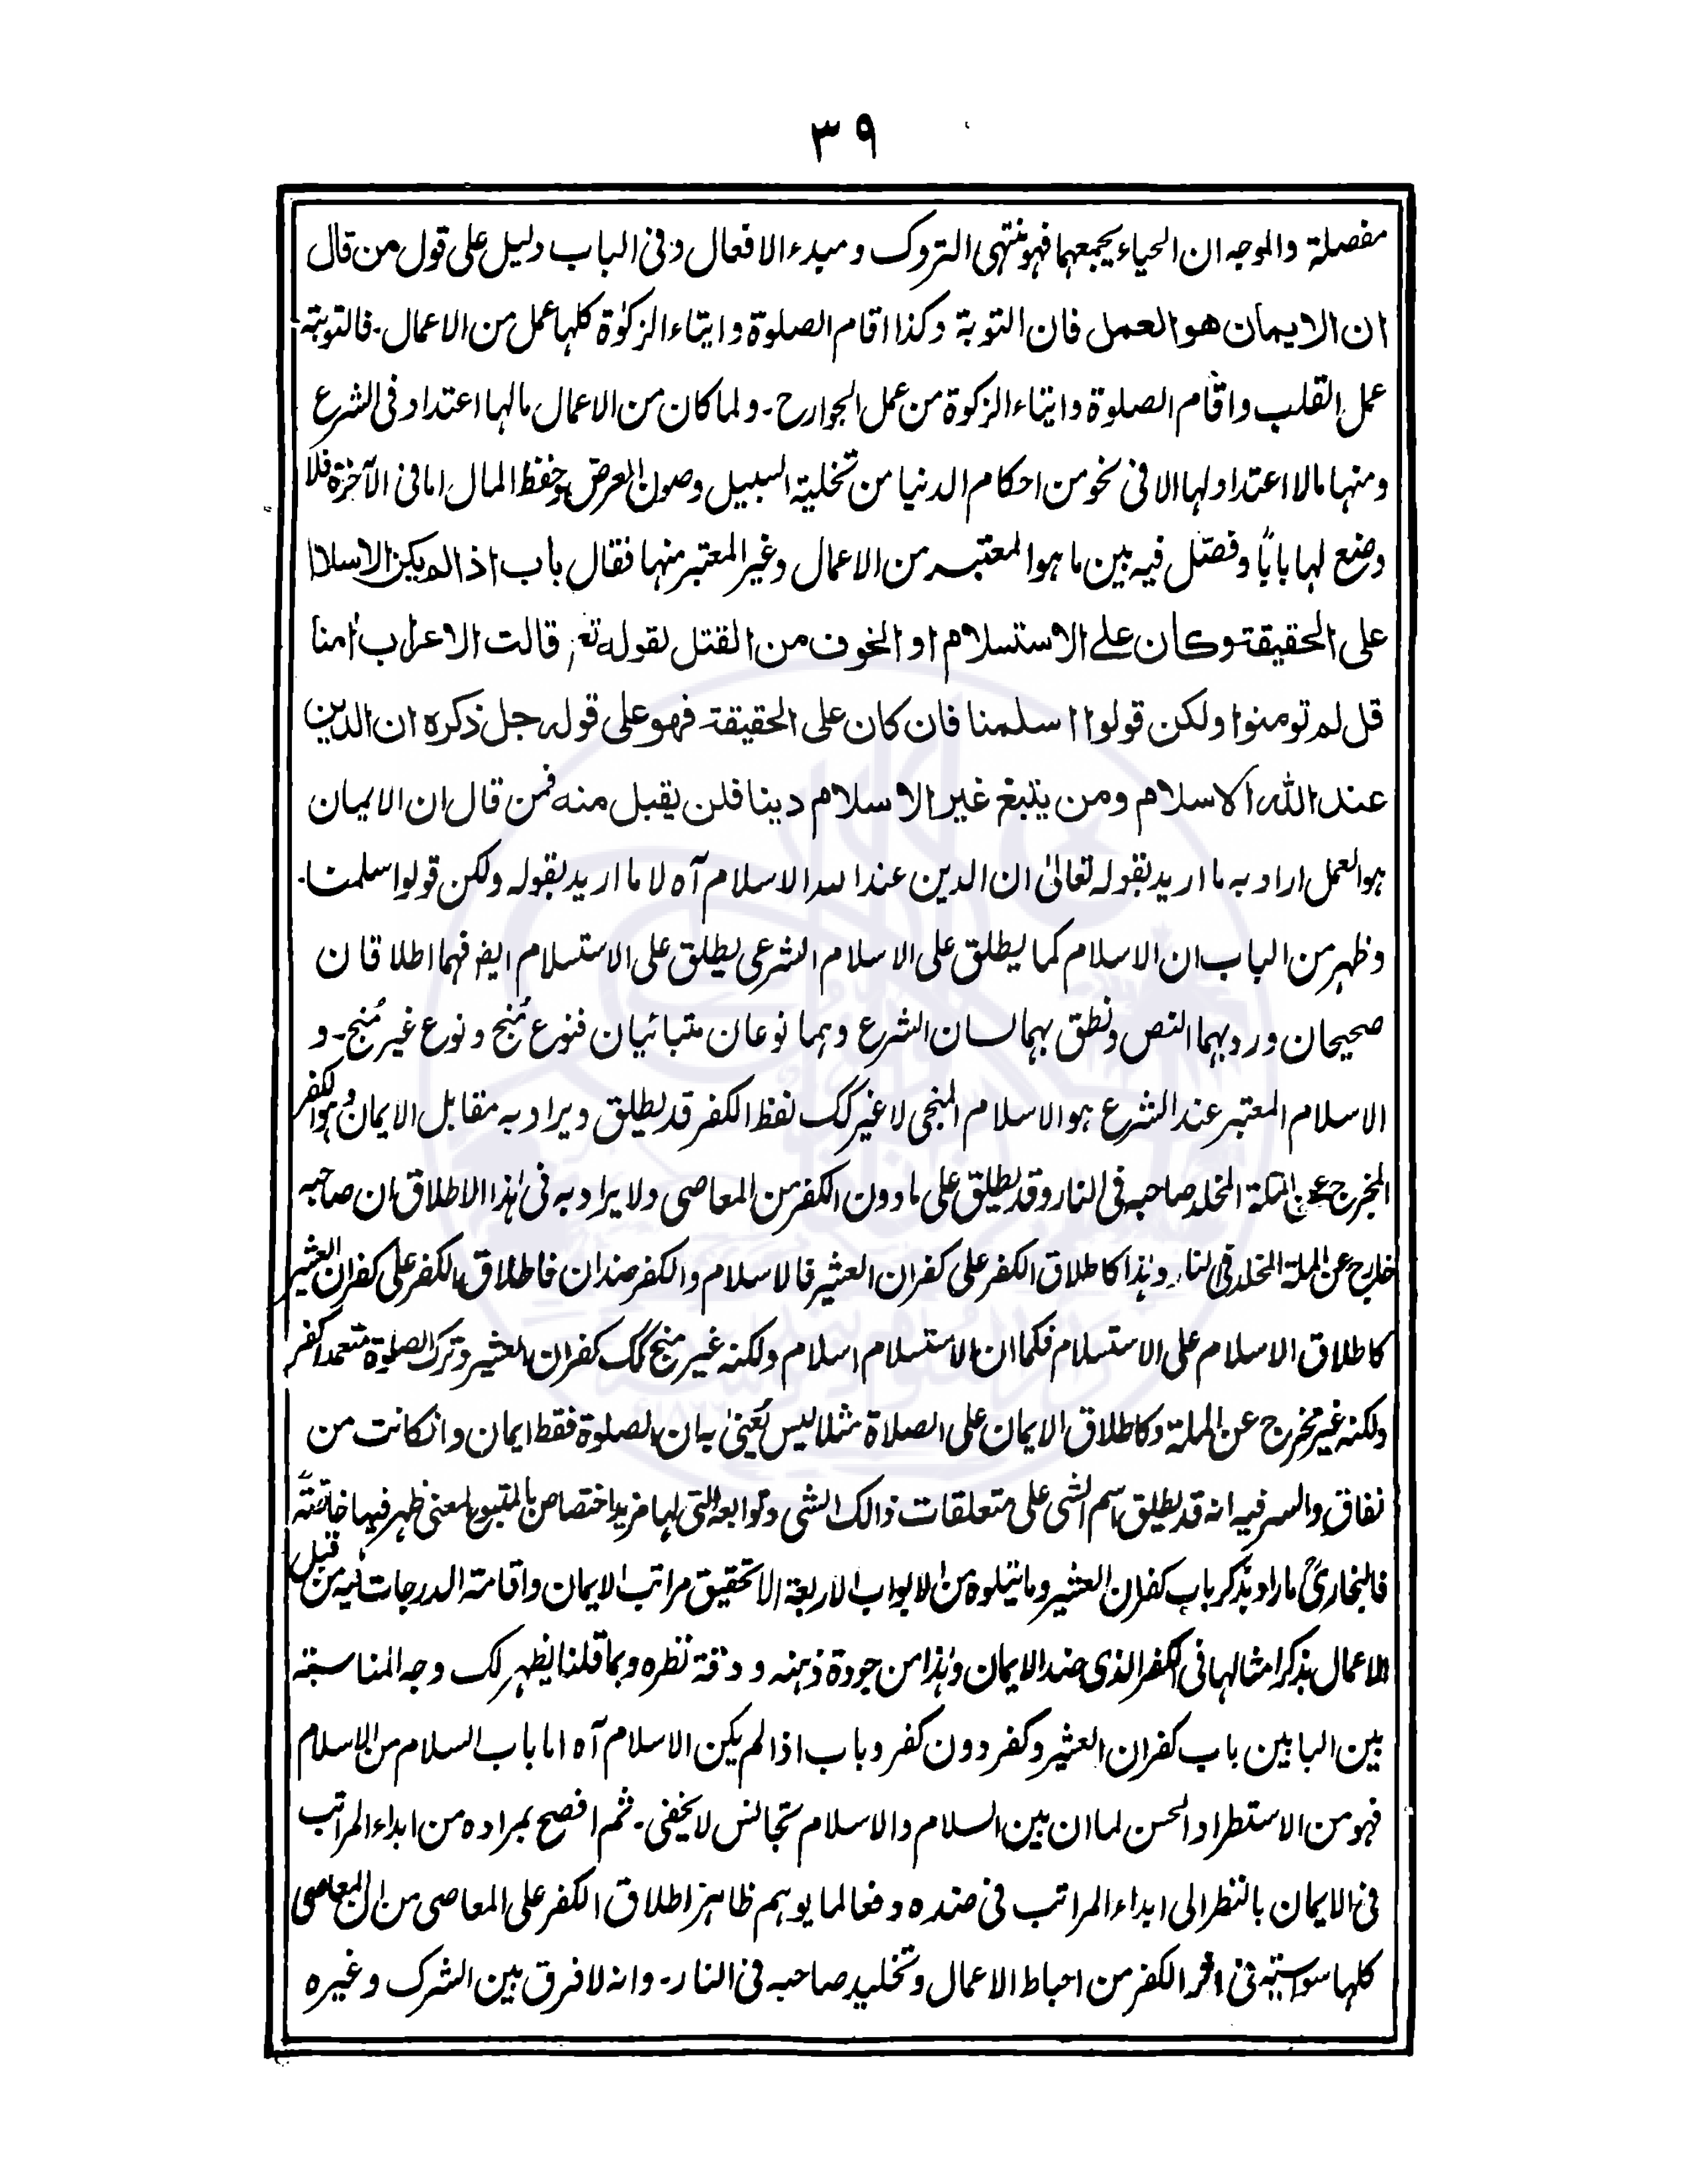 ٣٩
مفصلة والموجه ان الحياء يجمعهما فهو منتهى التروك ومبدء الافعال وفى الباب دليل على قول من قال
ان الايمان هو العمل فان التوبة وكذا اقام الصلوة وايتاء الزكوٰة كلها عمل من الاعمال - فالتوبة
عمل القلب واقام الصلوة وايتاء الزكوة من عمل الجوارح - ولما كان من الاعمال مالها اعتداد فى الشرع
ومنها مالا اعتداد لها الا فى نحو من احكام الدنيا من تخلية السبيل وصون العرض وحفظ المال اما فى الآخرة فلا
وضع لها بابًا وفصّل فيه بين ما هو المعتبر من الاعمال وغير المعتبر منها فقال باب اذا لم يكن الاسلام
على الحقيقة وكان علے الاستسلام او الخوف من القتل لقوله تعـ قالت الاعراب اٰمنا
قل لم تومنوا ولكن قولوا اسلمنا فان كان على الحقيقة فهو على قوله جل ذكره ان الدين
عند الله الاسلام ومن يتبغ غير الاسلام دينا فلن يقبل منه فمن قال ان الايمان
هو العمل اراد به ما اريد بقوله تعالىٰ ان الدين عند الله الاسلام آه لا ما اريد بقوله ولكن قولوا اسلمنا -
وظهر من الباب ان الاسلام كما يطلق على الاسلام الشرعى يطلق على الاستسلام ايضـ فهما اطلاقان
صحيحان ورد بهما النص ونطق بهما لسان الشرع وهما نوعان متبائنان فنوع مُنج ونوع غير مُنج - و
الاسلام المعتبر عند الشرع هو الاسلام المنجى لا غير كك لفظ الكفر قد يطلق ويراد به مقابل الايمان وهو الكفر
المخرج عن الملة المخلد صاحبه فى النار وقد يطلق على ما دون الكفر من المعاصى ولا يراد به فى هذا الاطلاق ان صاحبه
خارج عن الملة المخلد فى النار وهذا كاطلاق الكفر على كفران العشير فالاسلام والكفر ضدان فاطلاق الكفر على كفران العشير
كاطلاق الاسلام على الاستسلام فكما ان الاستسلام اسلام ولكنه غير منج كك كفران العشير وترك الصلوة متعمدا كفر
ولكنه غير مخرج عن الملة وكاطلاق الايمان على الصلاة مثلا ليس يُعنىٰ به ان الصلوة فقط ايمان وان كانت من
نفاق والسر فيه انه قد يطلق اسم الشى على متعلقات ذالك الشى وتوابعه التى لها مزيد اختصاص بالمتبوع لمعنى ظهر فيها خاصّةً
فالبخارىؒ ما اراد بذكر باب كفران العشير وما يتلوه من الابواب الاربعة الا تحقيق مراتب الايمان واقامة الدرجات فيه من قبل
الاعمال بذكر امثالها فى الكفر الذى ضد الايمان وهذا من جودة ذهنه ودقة نظره وبما قلنا يظهر لك وجه المناسبة
بين البابين باب كفران العشير وكفر دون كفر وباب اذا لم يكن الاسلام آه اما باب السلام من الاسلام
فهو من الاستطراد الحسن لما ان بين السلام والاسلام تجانس لا يخفى - ثم افصح بمراده من ابداء المراتب
فى الايمان بالنظر الى ابداء المراتب فى ضده دفعا لما يوهم ظاهر اطلاق الكفر على المعاصى من ان المعاصى
كلها سواسية فى الكفر من احباط الاعمال وتخليد صاحبه فى النار - وانه لا فرق بين الشرك وغيره